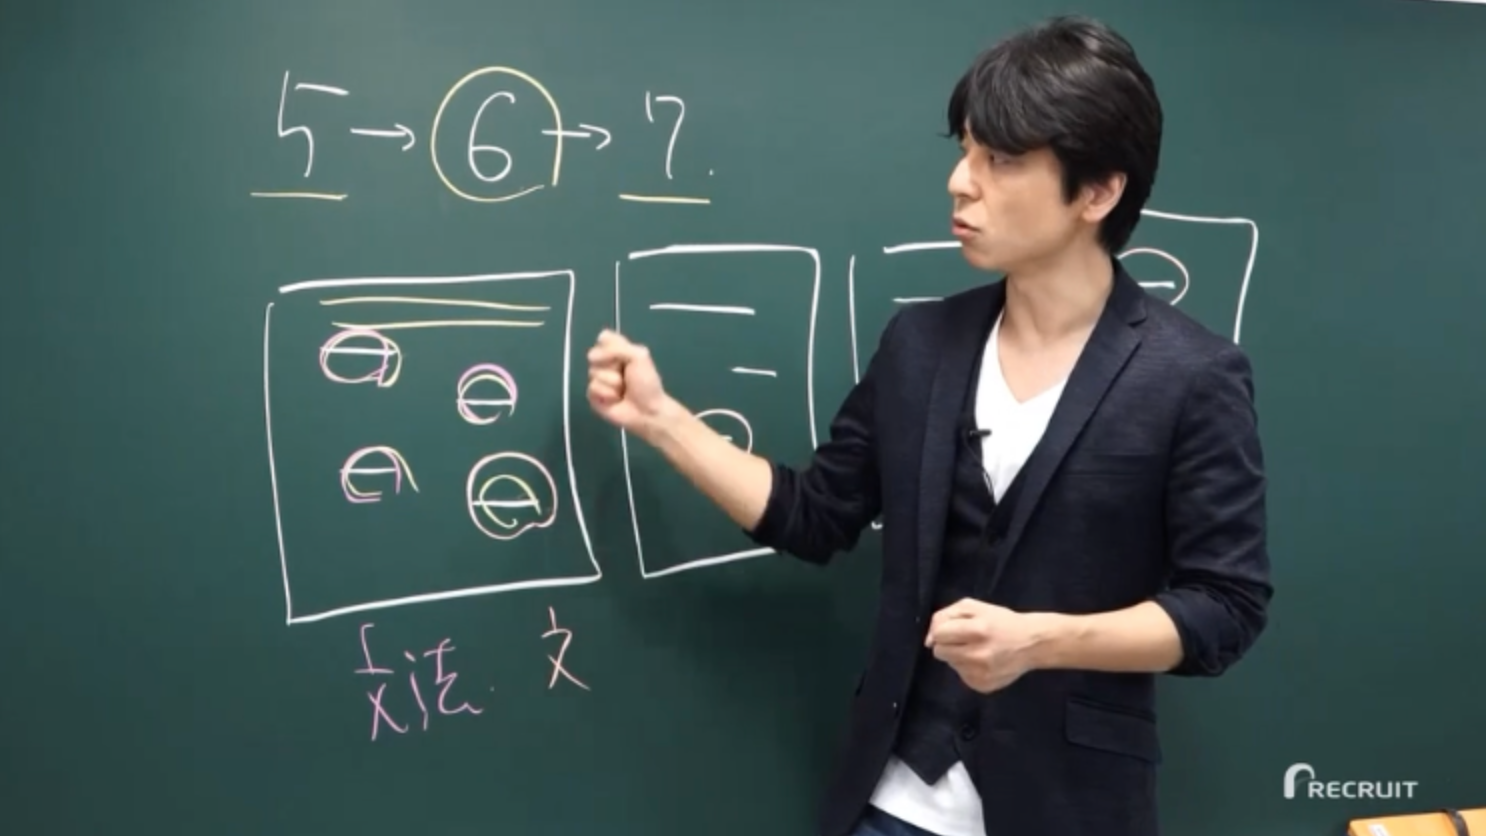 5 → 6 → 7.
文法 文
RECRUIT